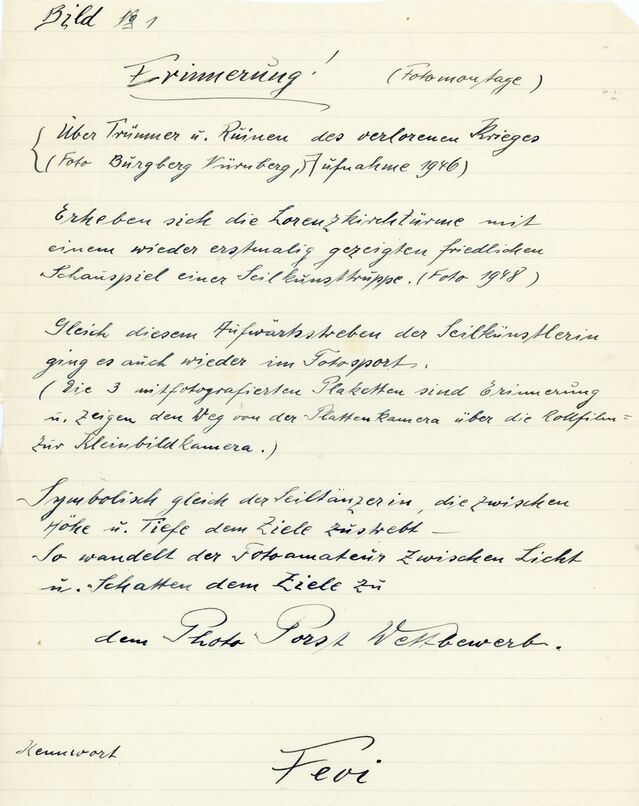 Bild № 1
Erinnerung! (Fotomontage)
Über Trümmer u. Ruinen des verlorenen Krieges
(Foto Burgberg Nürnberg, Aufnahme 1946)
Erheben sich die Lorenzkirchtürme mit
einem wieder erstmalig gezeigten friedlichen
Schauspiel einer Seilkunsttruppe. (Foto 1948)
Gleich diesem Aufwärtsstreben der Seilkünstlerin
ging es auch wieder im Fotosport.
(Die 3 mitfotografierten Plaketten sind Erinnerung
u. zeigen den Weg von der Plattenkamera über die Rollfilm=
zur Kleinbildkamera.)
Symbolisch gleich der Seiltänzerin, die zwischen
Höhe u. Tiefe dem Ziele zustrebt –
So wandelt der Fotoamateur zwischen Licht
u. Schatten dem Ziele zu
dem Photo Porst Wettbewerb.
Kennwort
Fevi